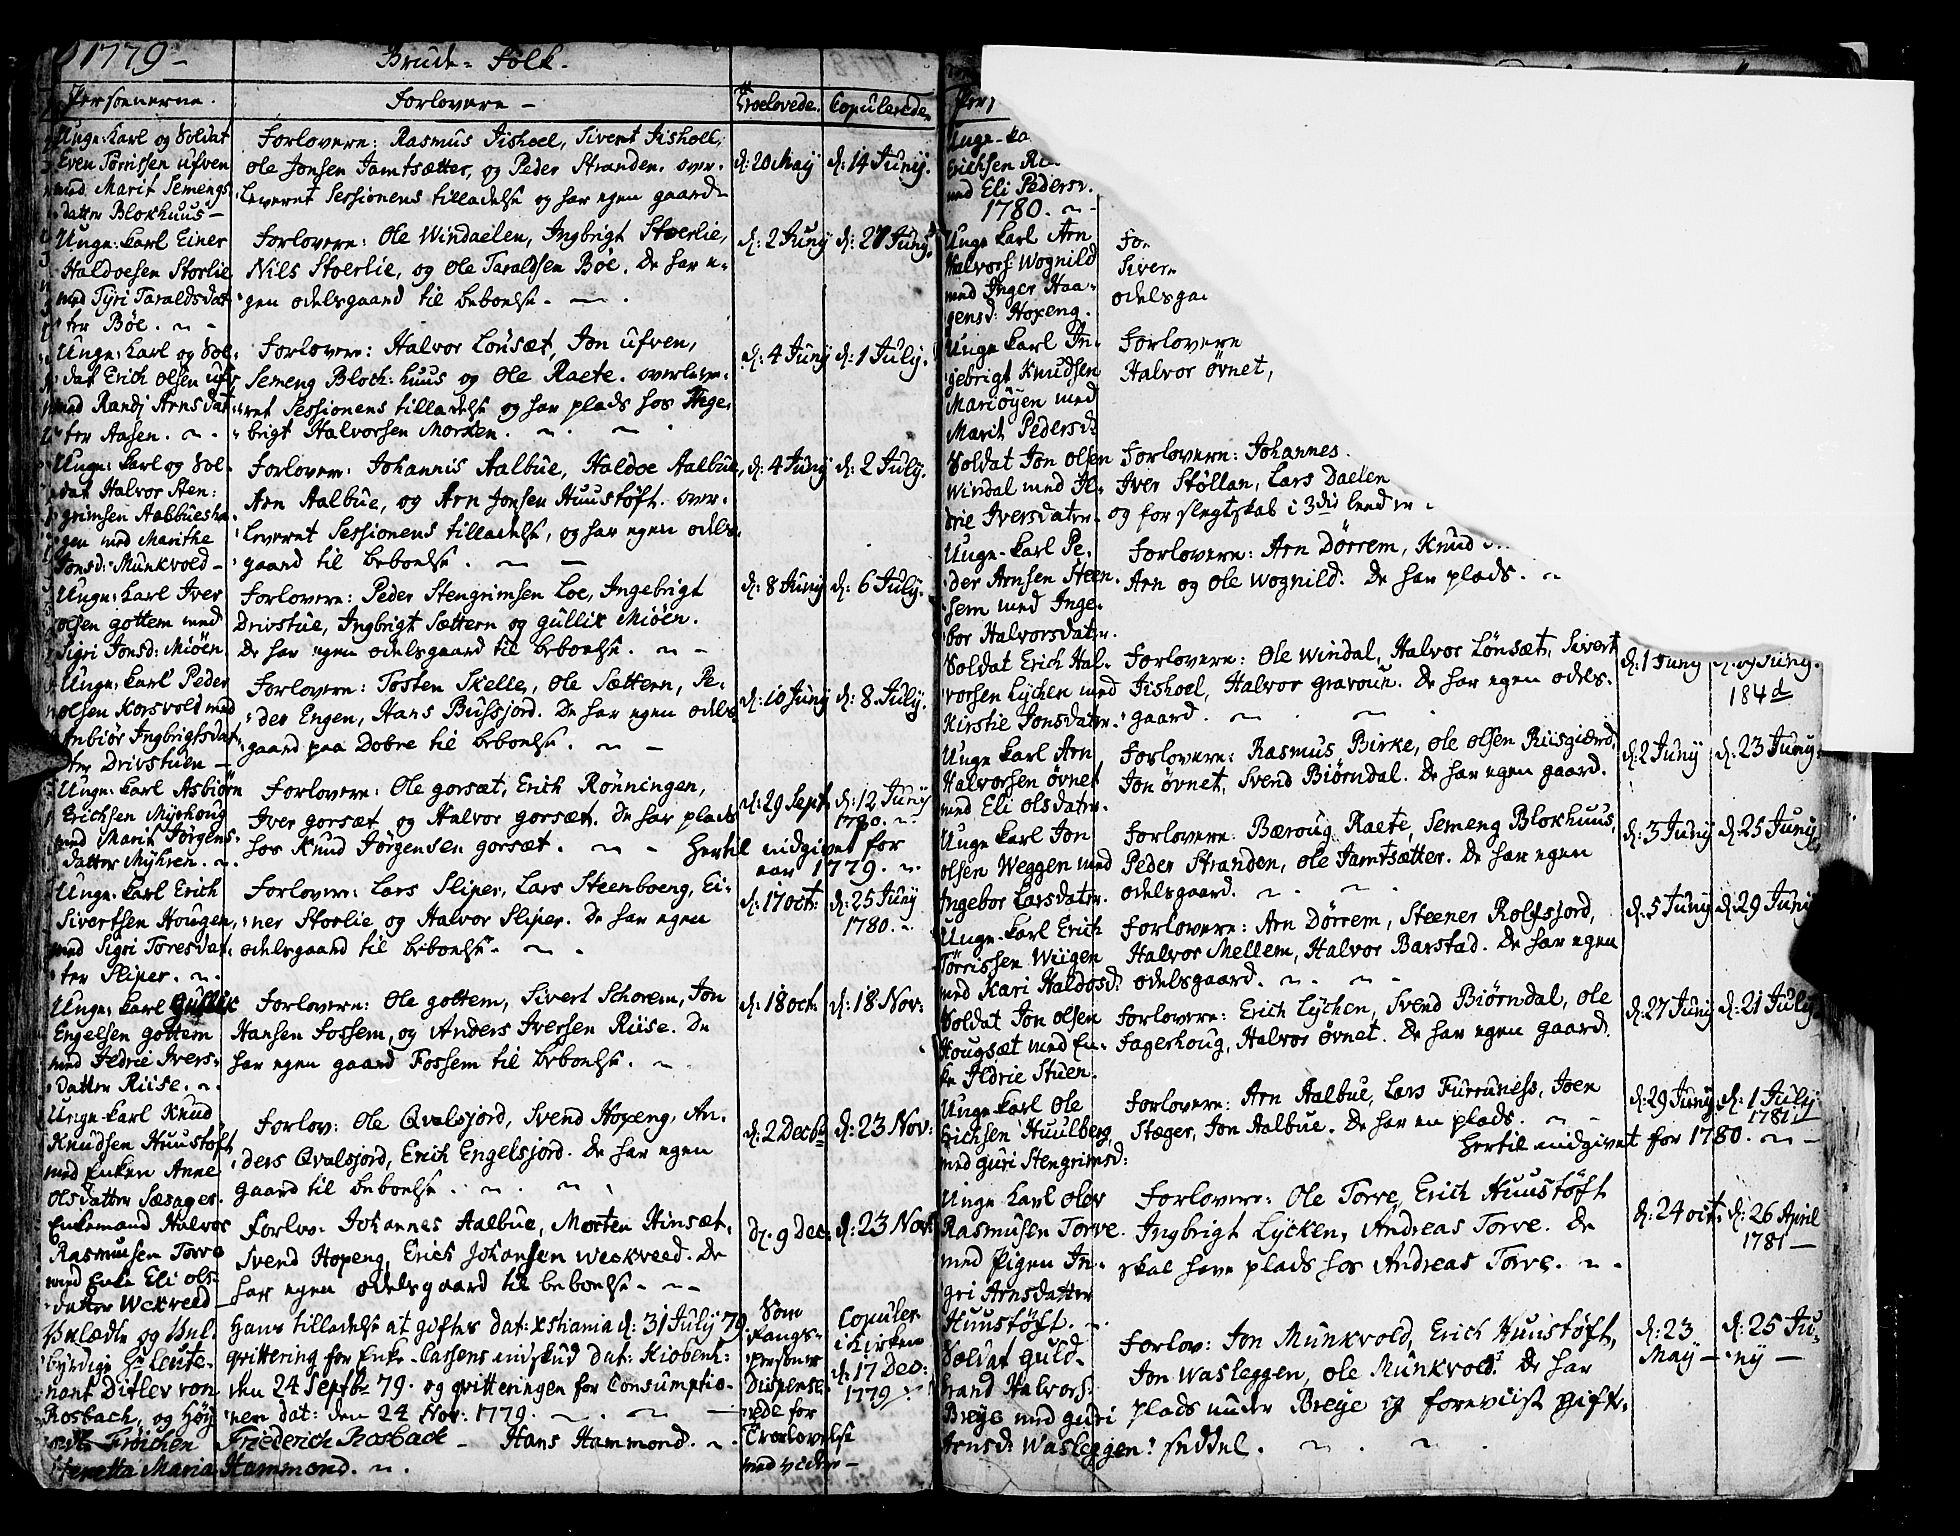 1779 –
Brude = Folk –
Personerne.
Forlovere –
Troelovede.
Copulerede.
Unge: Karl og Soldat
Even Törrissen ufven
med Marit Semengs
datter Blokhuus –
Forlovere: Rasmus Jishoel, Sivert Jishoel,
ole Jonsen Jamtsætter, og Peder Stranden. over-
leveret Sessionens tilladelse og har egen gaard –
d: 20 May
d: 14 Juny.
Unge: Karl Einer
Haldoesen Storlie
med Tyri Taraldsdat
ter Böe. ~ -
Forlovere: Ole Windaelen, Ingbrigt Stoerlie,
Nils Stoerlie, og Ole Taraldsen Böe. De har e-
gen odelsgaard til beboelse. — .
d: 2 Juny
d: 27 Juny.
Unge: Karl og Sol-
dat Erich olsen ufv
med Randi Arnsdat
ter Aasen. ~ .
Forlovere: Halvor Lönsæt, Jon ufven,
Semeng Bloch: huus og Ole Raete. overleve-
ret Sessionens tilladelse og har plads hos Inge-
brigt Halvorsen Morken. ~ . ~ .
d: 4 Juny
d: 1 July.
Unge: Karl og Sol-
dat Halvor Sten:
grimsen Aalbuesha
gen med Marithe
Jonsd: Munkvold –
Forlovere: Johannis Aalbue, Haldoe Aalbue,
Arn Aalbue, og Arn Jonsen Huustöft. over-
leveret Sessionens tilladelse, og har egen odels-
gaard til beboelse. — —
d: 4 Juny
d: 2 July.
Unge: Karl Iver
olsen gottem med
Sigri Jonsd: Miöen.
Forlovere: Peder Stengrimsen Loe, Ingebrigt
Drivstue, Ingbrigt Sættern og gullik Miöen.
De har egen odelsgaard til beboelse. ~ -
d: 8 Juny
d: 6 July.
Unge: Karl Peder
olsen Korsvold med
Anbiör Ingbrigtsdat-
ter Drivstuen –
Forlovere: Tosten Skelle, ole Sættern, Pe-
der Engen, Hans Bussjord. De har egen odels
gaard paa Dobre til beboelse. ~ -
d: 10 Juny
d: 8 July.
Unge: Karl Asbiörn
Erichsen Myrhoug
med Marit Jörgens-
datter Myhren. ~.
Forlovere: Ole gorsæt, Erich Rönningen,
Iver gorsæt og Halvor gorsæt. De har plads
hos Knud Jörgensen gorsæt. ~ -
d: 29 Sept
d: 12 Juny
1780. ~
Hertil indgivet for
aar 1779. ~
Unge: Karl Erich
Sivertsen Hougen,
med Sigri Toresdat-
ter Sliper. ~.
Forlovere: Lars Sliper, Lars Steenboeng, Ei-
ner Storlie og Halvor Sliper. De har egen
odelsgaard til beboelse. ~ .
d: 17 oct:
d: 25 Juny
1780. ~
Unge: Karl Gullik
Engelsen gottem
med Jedrie Ivers-
datter Riise. ~.
Forlovere: Ole gottem, Sivert Schorem, Jon
Hansen Fossem, og Anders Iversen Riise. De
har egen gaard Fossem til beboelse. ~
d: 18 oct.
d: 18 Nov:
Unge: Karl Knud
Knudsen Huustöft
med Enken Anne
olsdatter Sæsages.
Forlov: Ole Qvalsjord, Svend Hopeng, An-
ders Qvalsjord, Erich Engelsjord. De har egen
gaard til beboelse. ~ . ~ .
d: 2 Decbr
d: 23 Nov:
Enkemand Halvor
Rasmusen Torve
med Enke Eli ols-
datter Wekveed –
Forlov: Johannes Aalbue, Morten Hinsæt,
Svend Hopeng, Erich Johansen Weekveed. De
har egen odelsgaard til beboelse – ~ -
d: 9 Dec:
d: 23 Nov:
Velædle og Vel-
byrdige Hr Leute-
nant Ditlev von
Rosbach, og Höy
Fröichen
Maria
Hans tilladelse at giftes dat: Xstiania d: 31 July 79
qvittering for Enke-Cassens indskud dat: Kiöbenh:
den 24 Septbr 79. og qvitteringen for Consumptio-
nen dat: den 24 Nov: 1779. ~ . ~ . —
Friederich Rosback – Hans Hammond. ~.
Hammond. ~.
Som
Rangs-
Personer
Dispense-
rede for
Trolovelse
med videre –
Copuler
i Kirken
d: 17 Dec:
1779
Per
Unge-Ka
Erichsen
med Eli Pedersd.
1780. ~ -
Unge Karl Arn
Halvors: Wognild
med Inger Haa-
gensd: Hopeng.
For
Siver
odelsga
Unge Karl In-
gebrigt Knudsen
Mariöyen med
Marit Pedersd:
Forlovere
Halvor övnet,
Soldat Jon olsen
Windal med Il-
drie Iversdater.
Forlovere: Johannes
Iver Stöllan, Lars Daelen
og for slegtskab i 3die leed er
Unge-Karl Pe-
der Arnsen Steen-
sem med Inge-
bor Halvorsdater.
Forlovere: Arn Dörrem, Knud
Arn og Ole Wognild. De har plads. ~
Soldat Erich Hal-
vorsen Lychen med
Kirstie Jonsdater.
Forlovere: Ole Windal, Halvor Lönsæt, Sivert
Jishoel, Halvor graveun. De har egen odels-
gaard. ~ . ~ .
d: 1 Juny
Juny.
184d
Unge Karl Arn
Halvorsen övnet
med Eli olsdater.
Forlovere: Rasmus Birke, ole olsen Riisgiærd,
Jon övnet, Svend Biörndal. De har egen gaard.
d: 2 Juny
d: 23 Juny.
Unge Karl Jon
olsen Weggen med
Ingebor Larsdater.
Forlovere: Bæroug Raete, Semeng Blokhuus,
Peder Stranden, ole Jamtsætter. De har egen
odelsgaard. ~ . ~ .
d: 3 Juny
d: 25 Juny
Unge-Karl Erich
Törrissen Wiigen
med Kari Haldosd:
Forlovere: Arn Dörrem, Steener Rolfsjord,
Halvor Mellem, Halvor Barstad. De har egen
odelsgaard. ~ . ~ -
d: 5 Juny
d: 29 Juny
Soldat Jon olsen
Hougsæt med En-
ke Ildrie Stuen.
Forlovere: Erich Lychen, Svend Biörndal, ole
Fagerhoug, Halvor övnet. De har egen gaard.
d: 27 Juny
d: 21 July
Unge-Karl Ole
Erichsen Huulberg
med guri Stengrimsd:
Forlovere: Arn Aalbue, Lars Furruness, Joen
Stæger, Jon Aalbue. De har en plads. ~
d: 29 Juny
d: 1 July
1781
Hertil indgivet for 1780. ~ -
Unge Karl olev
Rasmusen Torve
med Pigen In-
gri Arnsdatter
Huustöft. ~
Forlovere: Ole Torve, Erich Huustöft
Ingbrigt Lycken, Andreas Torve. De
skal have plads hos Andreas Torve. ~ .
d: 24 oct:
d: 26 April
1781 —
Soldat Guld-
brand Halvors:
Breye med guri
Arnsd: Wasleggen.
Forlov: Jon Munkvold, Erich Huustöft,
Jon Wasleggen, ole Munkvold. De har
plads under Breye og foreviist gift-
seddel. ~ . ~ .
d: 23
May —
d: 25 Ju-
ny —